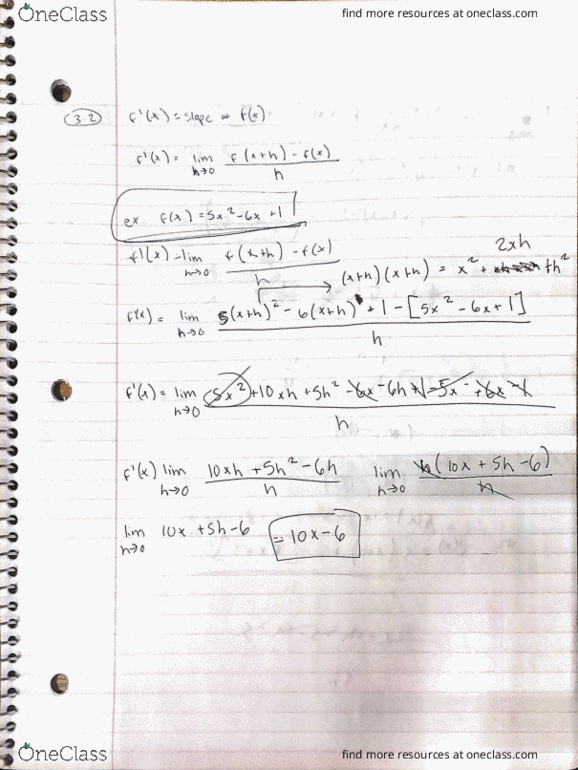 OneClass
find more resources at oneclass.com
3.2 f'(x) = slope of f(x)
f'(x) = lim h→0 f(x+h) - f(x) / h
ex f(x) = 5x² - 6x + 1
f'(x) = lim h→0 f(x+h) - f(x) / h
(x+h)(x+h) = x² + 2xh + h²
f'(x) = lim h→0 5(x+h)² - 6(x+h) + 1 - [5x² - 6x + 1] / h
f'(x) = lim h→0 5x² + 10xh + 5h² - 6x - 6h + 1 - 5x² + 6x - 1 / h
f'(x) lim h→0 10xh + 5h² - 6h / h lim h→0 h(10x + 5h - 6) / h
lim h→0 10x + 5h - 6 = 10x - 6
OneClass
find more resources at oneclass.com